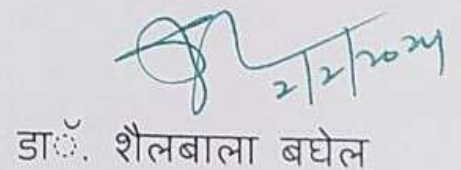 2/2/2024
डाॅ. शैलबाला बघेल